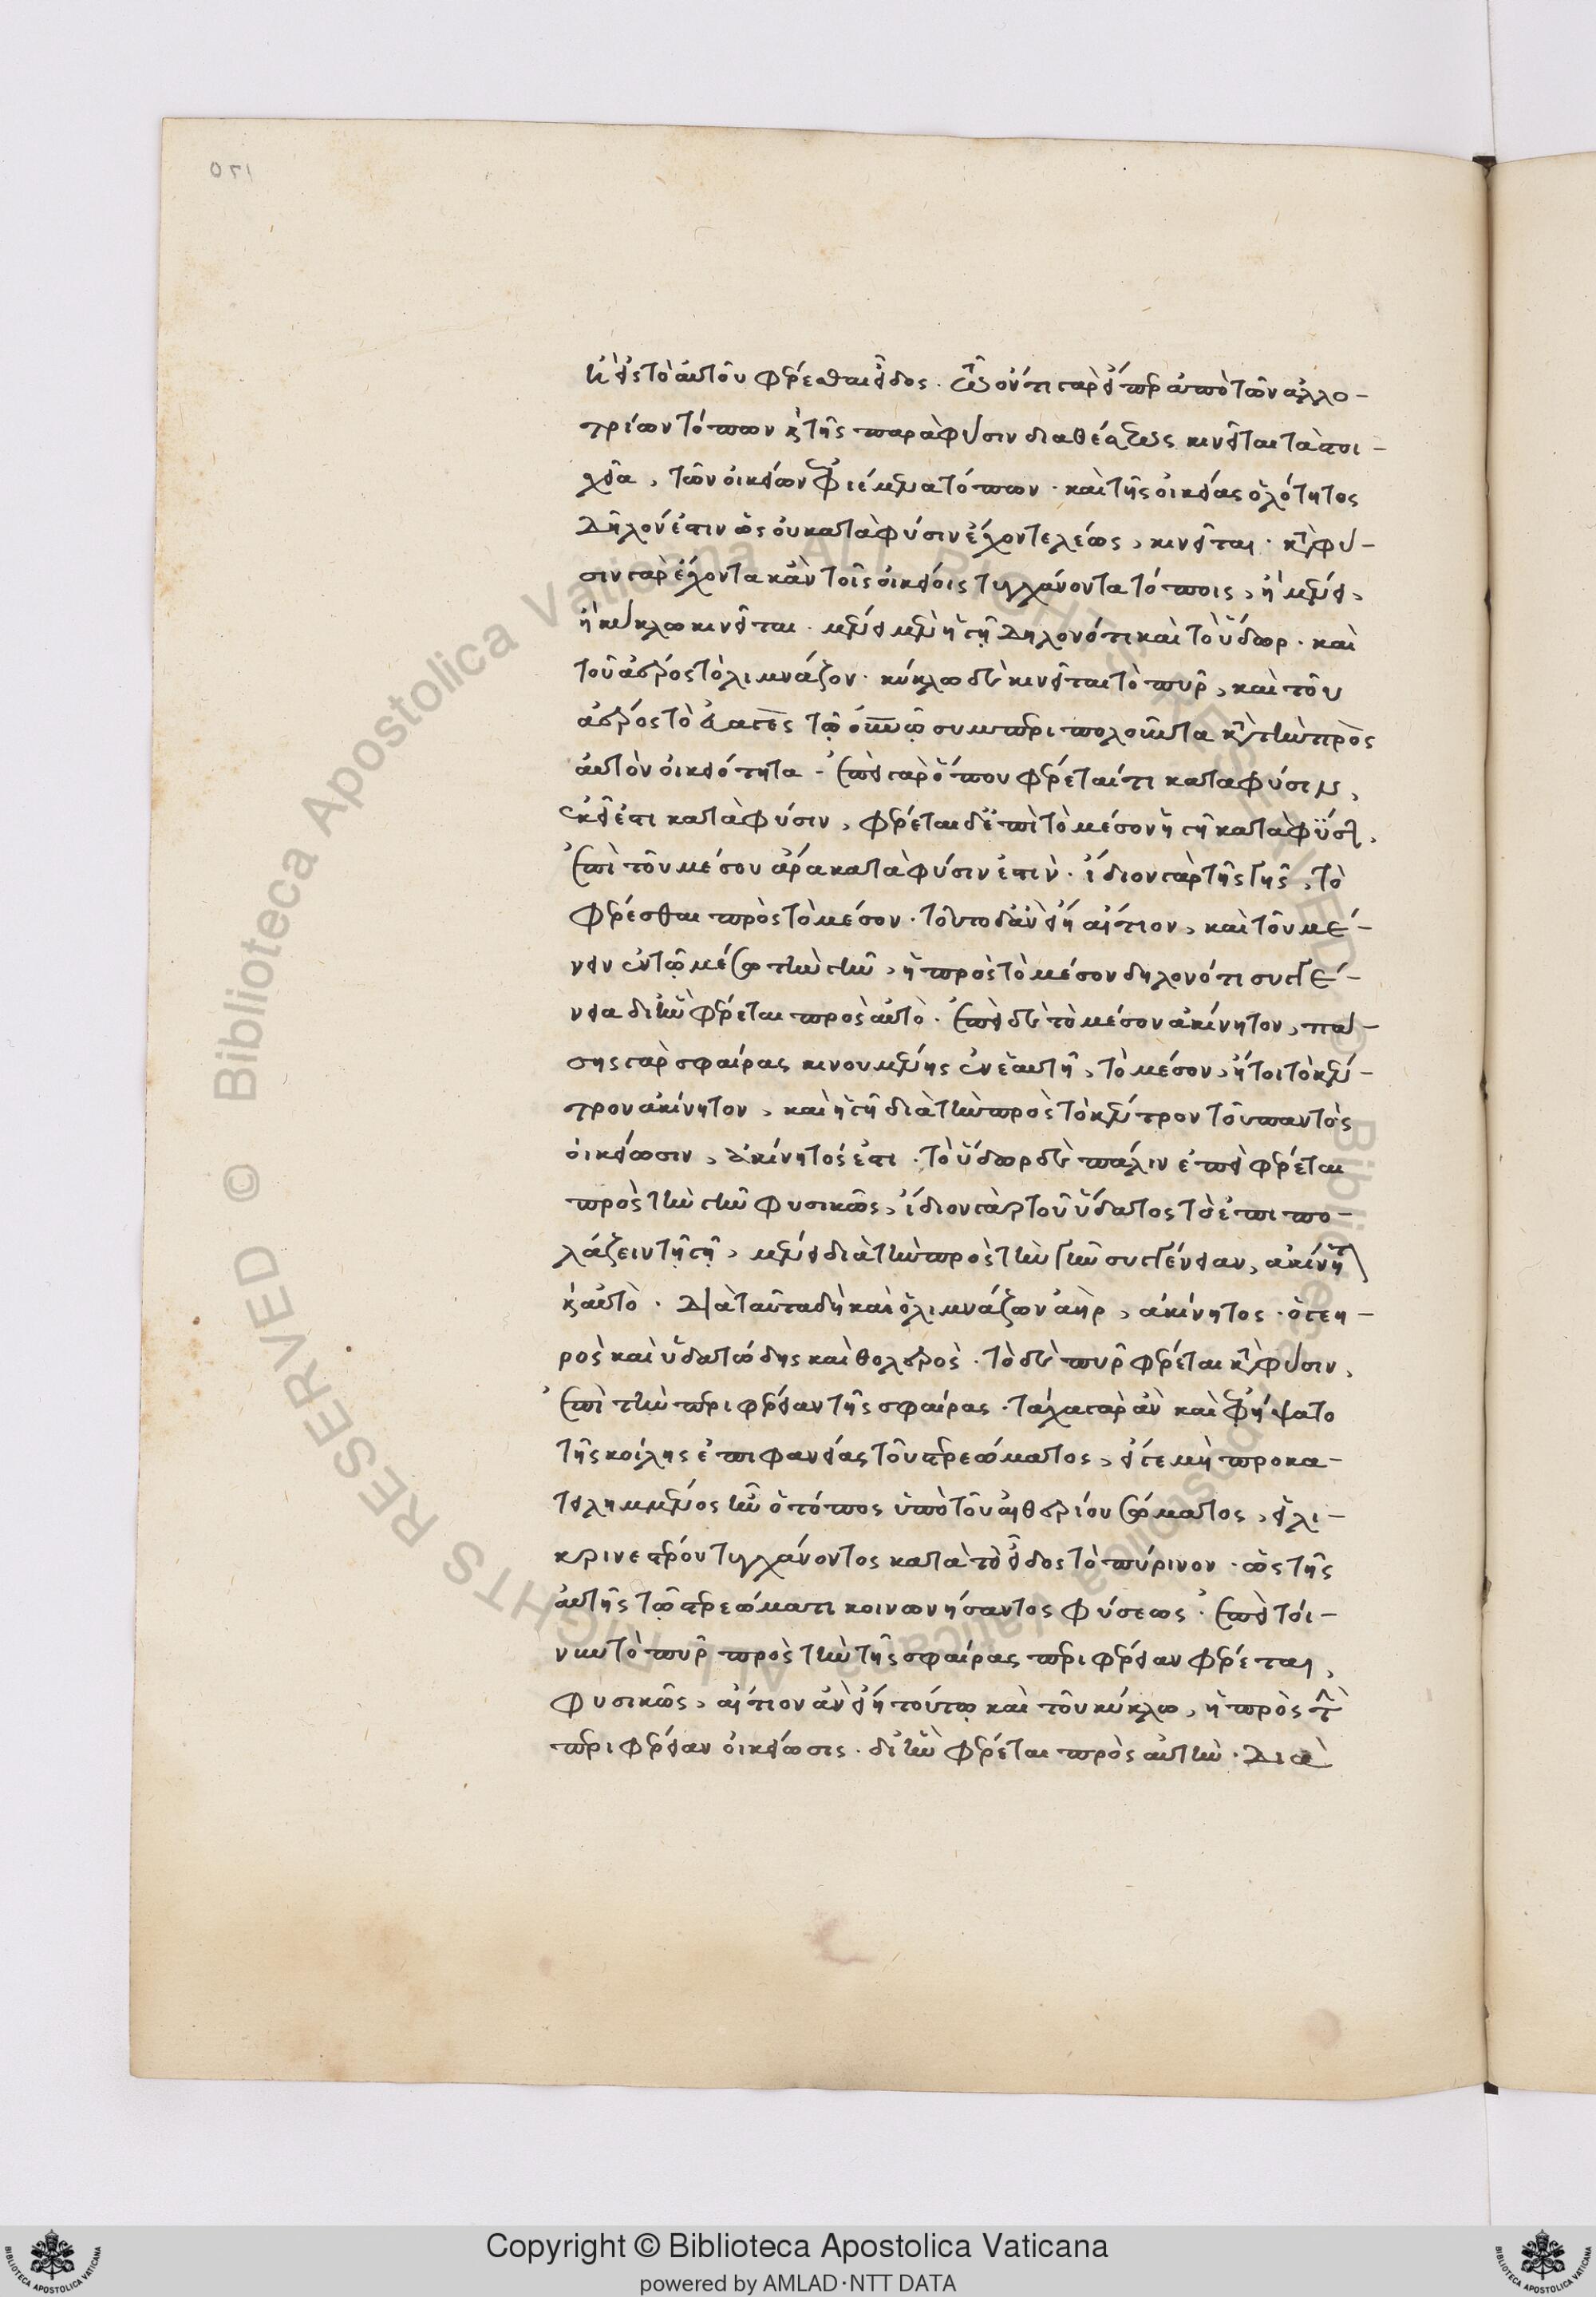 κεῖ εἰς τὸ αὐτοῦ φέρεσθαι εἶδος. ὡς οὖν τι γὰρ εἴπερ ἀπὸ τῶν ἀλλο-
τρίων τόπων καὶ τῆς παρὰ φύσιν διαθέσεως κινεῖται τὰ στοι-
χεῖα, τῶν οἰκείων ἐφιέμενα τόπων. καὶ τῆς οἰκείας ὁλότητος
δῆλόν ἐστιν ὡς οὐ κατὰ φύσιν ἔχον τελέως, κινεῖται. κατὰ φύ-
σιν γὰρ ἔχοντα κἀν τοῖς οἰκείοις τυγχάνοντα τόποις, ἢ μένει,
ἢ κύκλω κινεῖται. μένει μὲν ἡ γῆ δηλονότι καὶ τὸ ὕδωρ. καὶ
τοῦ ἀέρος τὸ λιμνάζον. κύκλω δὲ κινεῖται τὸ πῦρ, καὶ τοῦ
ἀέρος τὸ εὐαγὲς τῷ οὐνῷ συμπεριπολοῦντα κατὰ τὴν πρὸς
αὐτὸν οἰκειότητα. ἐπεὶ γὰρ ὅπου φέρεταί τι κατὰ φύσιν,
ἐκεῖ ἐστι κατὰ φύσιν, φέρεται δ' ἐπὶ τὸ μέσον ἡ γῆ κατὰ φύσιν,
ἐπὶ τοῦ μέσου ἄρα κατὰ φύσιν ἐστίν. ἴδιον γὰρ τῆς γῆς, τὸ
φέρεσθαι πρὸς τὸ μέσον. τοῦτο δ' ἂν εἴη αἴτιον, καὶ τοῦ μέ-
νειν ἐν τῷ μέσῳ τὴν γῆν, ἡ πρὸς τὸ μέσον δηλονότι συγγέ-
νεια δι' ἣν φέρεται πρὸς αὐτό. ἐπεὶ δὲ τὸ μέσον ἀκίνητον, πά-
σης γὰρ σφαίρας κινουμένης ἐν ἑαυτῇ, τὸ μέσον, ἤτοι τὸ κέν-
τρον ἀκίνητον, καὶ ἡ γῆ διὰ τὴν πρὸς τὸ κέντρον τοῦ παντὸς
οἰκείωσιν, ἀκίνητός ἐστι. τὸ ὕδωρ δὲ πάλιν ἐπεὶ φέρεται
πρὸς τὴν γῆν φυσικῶς, ἴδιον γὰρ τοῦ ὕδατος τὸ ἐπιπο-
λάζειν τῇ γῇ, μένει διὰ τὴν πρὸς τὴν γῆν συγγένειαν, ἀκίνητον
καὶ αὐτό. Διὰ ταῦτα δὴ καὶ ὁ λιμνάζων ἀὴρ, ἀκίνητος. ὅ γε η-
ρὸς καὶ ὑδατώδης καὶ θολερός. τὸ δὲ πῦρ φέρεται κατὰ φύσιν,
ἐπὶ τὴν περιφέρειαν τῆς σφαίρας. τάχα γὰρ ἂν καὶ ἐφήψατο
τῆς κοίλης ἐπιφανείας τοῦ στερεώματος, εἴ γε μὴ προκα-
τειλημμένος ἦν ὁ τόπος ὑπὸ τοῦ αἰθερίου σώματος, εἰλι-
κρινεστέρου τυγχάνοντος κατὰ τὸ εἶδος τὸ πύρινον. ὡς τῆς
αὐτῆς τῷ στερεώματι κοινωνήσαντος φύσεως. ἐπεὶ τοί-
νυν τὸ πῦρ πρὸς τὴν τῆς σφαίρας περιφέρειαν φέρεται,
φυσικῶς, αἴτιον ἂν εἴη τούτῳ καὶ τοῦ κύκλω, ἡ πρὸς τὴν
περιφέρειαν οἰκείωσις. δι' ἣν φέρεται πρὸς αὐτήν. Διὰ
Copyright © Biblioteca Apostolica Vaticana
powered by AMLAD·NTT DATA